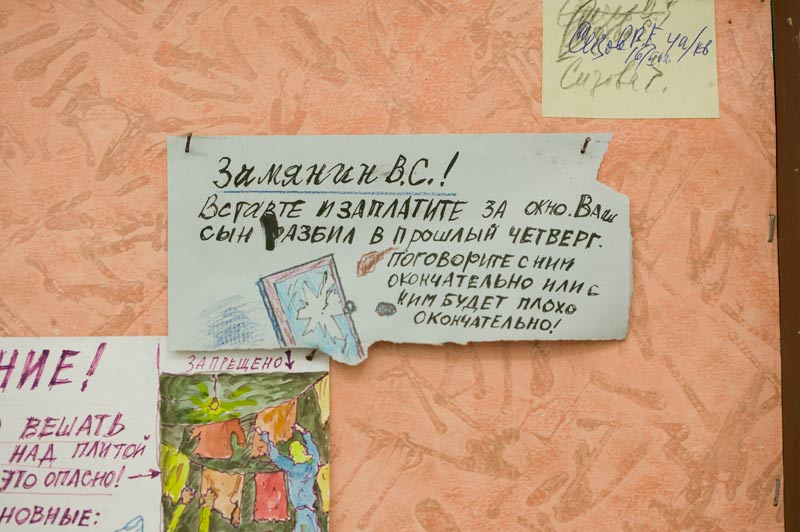 Сизова Г.
Замянин В.С.!
Вставте и заплатите за окно. Ваш
сын разбил в прошлый четверг.
Поговорите с ним
окончательно или с
ним будет плохо
окончательно!
НИЕ!
ЗАПРЕЩЕНО
ВЕШАТЬ
НАД ПЛИТОЙ
ЭТО ОПАСНО!
НОВНЫЕ: